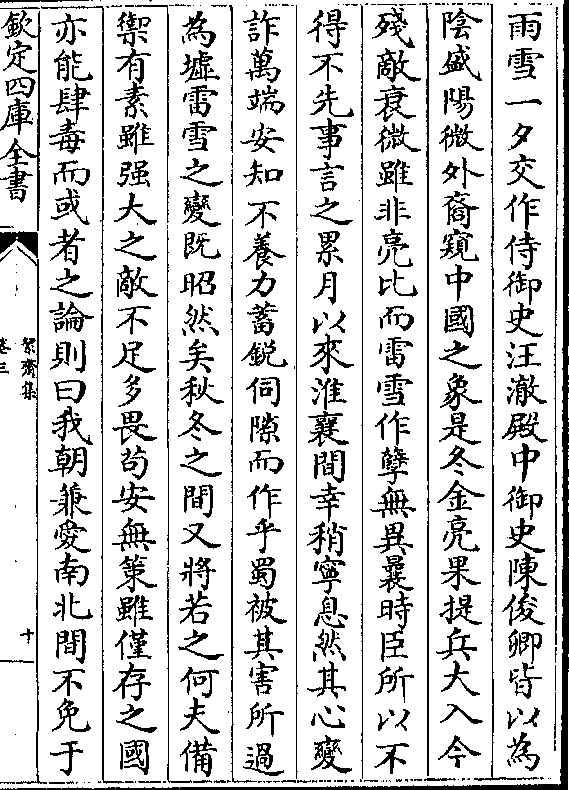 雨雪一夕交作侍御史汪澈殿中御史陳俊卿皆以為
陰盛陽微外裔窺中國之象是冬金亮果提兵大入今
殘敵衰微雖非亮比而雷雪作孽無異曩時臣所以不
得不先事言之累月以來淮襄間幸稍寧息然其心變
詐萬端安知不養力蓄鋭伺隙而作乎蜀被其害所過
為墟雷雪之變既昭然矣秋冬之間又將若之何夫備
禦有素雖强大之敵不足多畏苟安無策雖僅存之國
亦能肆毒而或者之論則曰我朝兼愛南北間不免于
欽定四庫全書
絜齋集
卷三
十